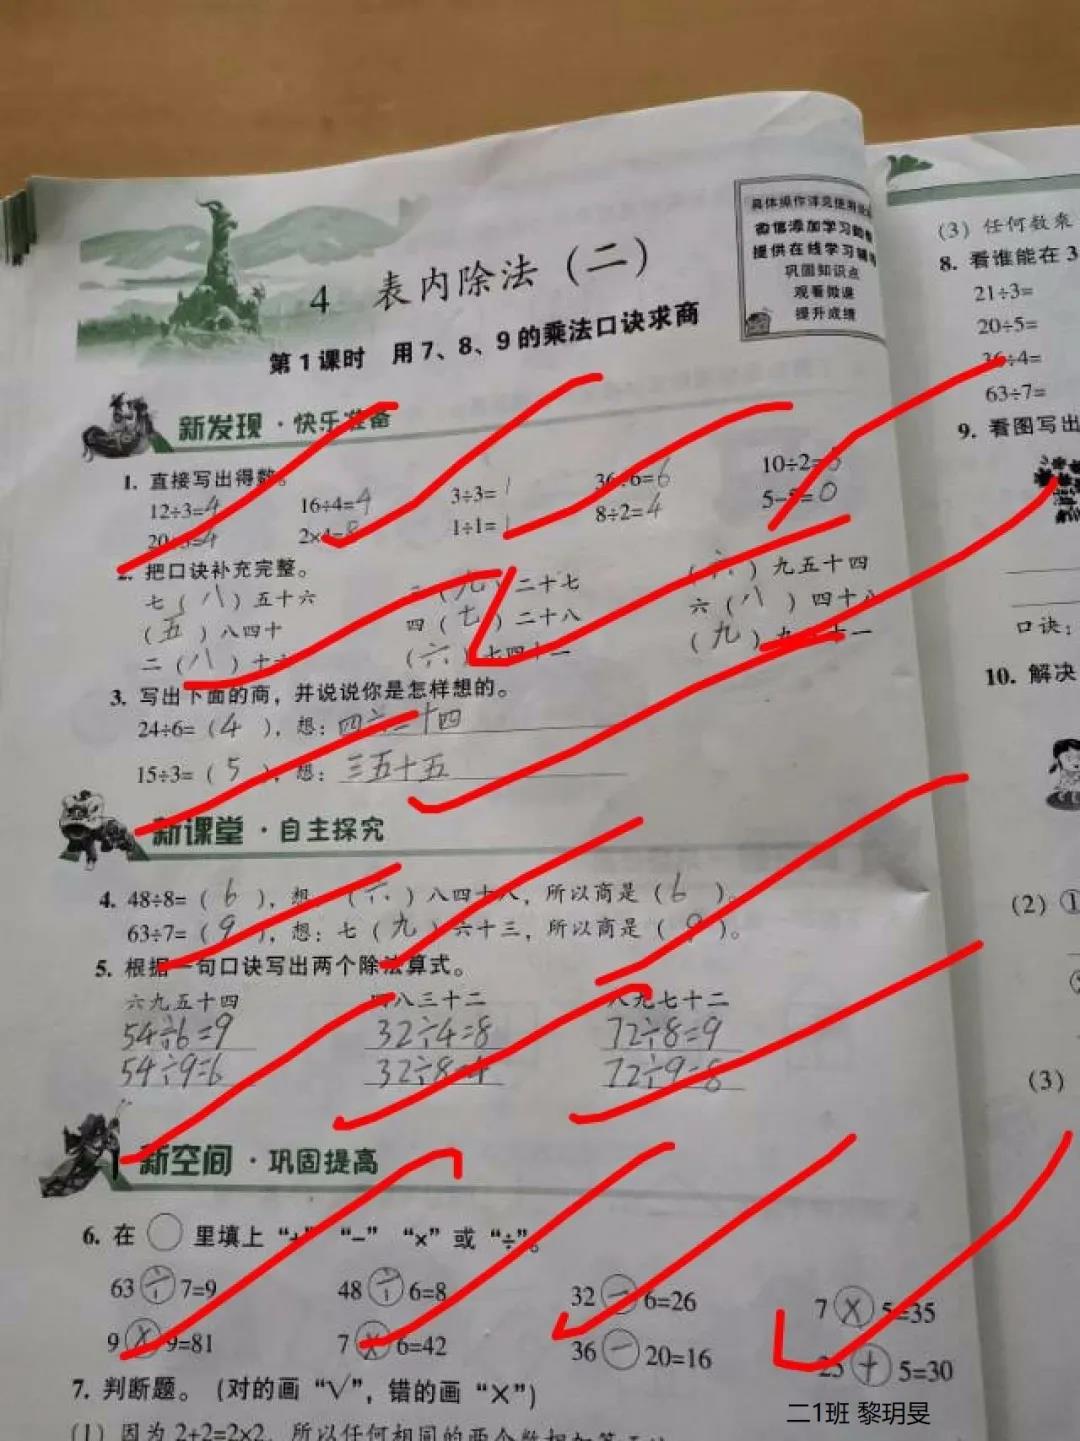 具体操作详见使用说
微信添加学习助
提供在线学习辅
巩固知识点
观看微课
提升成绩
4 表内除法（二）
第1课时 用7、8、9的乘法口诀求商
新发现·快乐准备
1. 直接写出得数。
12÷3=4 16÷4=4 3÷3=1 36÷6=6 10÷2=
4 2×4=8 1÷1=1 8÷2=4 5-5=0
2. 把口诀补充完整。
七（八）五十六 （九）二十七 （六）九五十四
（五）八四十 四（七）二十八 六（八）四十八
二（八）十六 （六）七四十二 （九）九八十一
3. 写出下面的商，并说说你是怎样想的。
24÷6=（4），想：四六二十四
15÷3=（5），想：三五十五
新课堂·自主探究
4. 48÷8=（6），想：（六）八四十八，所以商是（6）。
63÷7=（9），想：七（九）六十三，所以商是（9）。
5. 根据一句口诀写出两个除法算式。
六九五十四 四八三十二 八九七十二
54÷6=9 32÷4=8 72÷8=9
54÷9=6 32÷8=4 72÷9=8
新空间·巩固提高
6. 在○里填上“+”“-”“×”或“÷”。
63÷7=9 48÷6=8 32-6=26 7×5=35
9×9=81 7×6=42 36-20=16 25+5=30
7. 判断题。（对的画“√”，错的画“×”）
(1) 因为2+2=2×2，所以任何相同的两个数相加
(3) 任何数乘
8. 看谁能在3
21÷3=
20÷5=
36÷4=
63÷7=
9. 看图写出
口诀：
10. 解决
(2) ①
(3)
二1班 黎玥旻